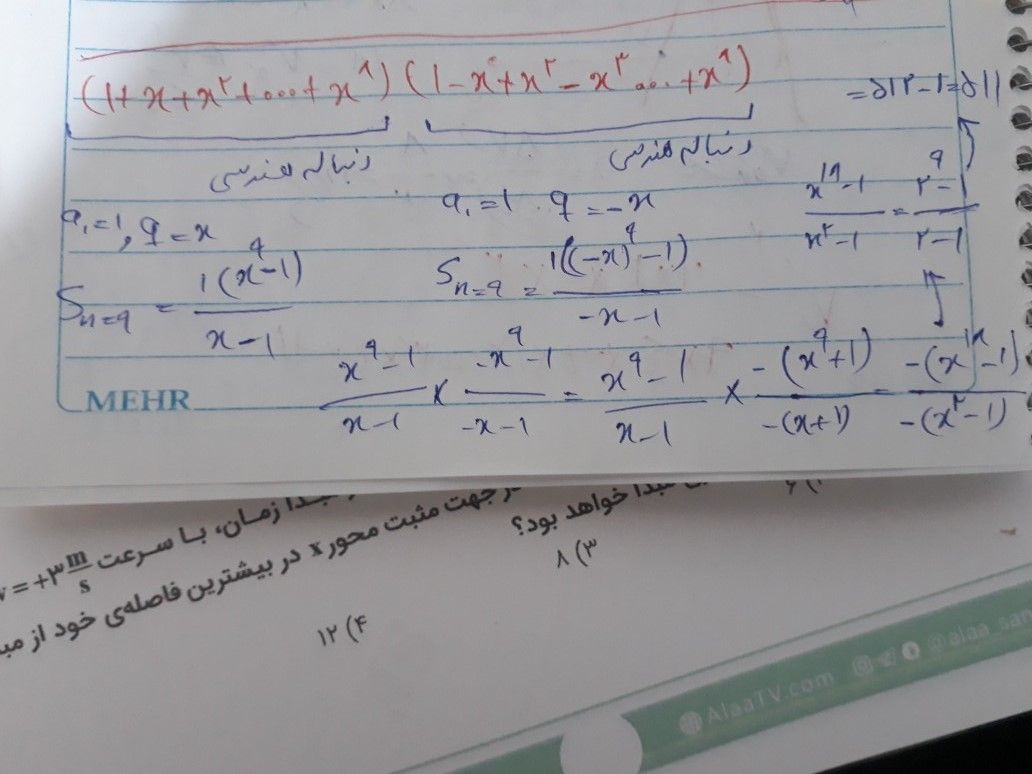 (1+x+x²+...+x⁸)(1-x+x²-x³...+x⁸)
=۵۱۲-۱=۵۱۱
دنباله هندسی
دنباله هندسی
a₁=1, q=x
a₁=1 q=-x
(x¹⁸-1)/(x²-1) = (۲⁹-1)/(۲-1)
Sₙ₌₉ = 1(x⁹-1)/(x-1)
Sₙ₌₉ = 1((-x)⁹-1)/(-x-1)
(x⁹-1)/(x-1) × (-x⁹-1)/(-x-1) = (x⁹-1)/(x-1) × -(x⁹+1)/-(x+1) = -(x¹⁸-1)/-(x²-1)
MEHR
مبدا زمان، با سرعت v=+۳ m/s
در جهت مثبت محور x در بیشترین فاصله‌ی خود از
مبدا خواهد بود؟
۶ (۱
۸ (۳
۱۲ (۴
AlaaTV.com
@alaa_san